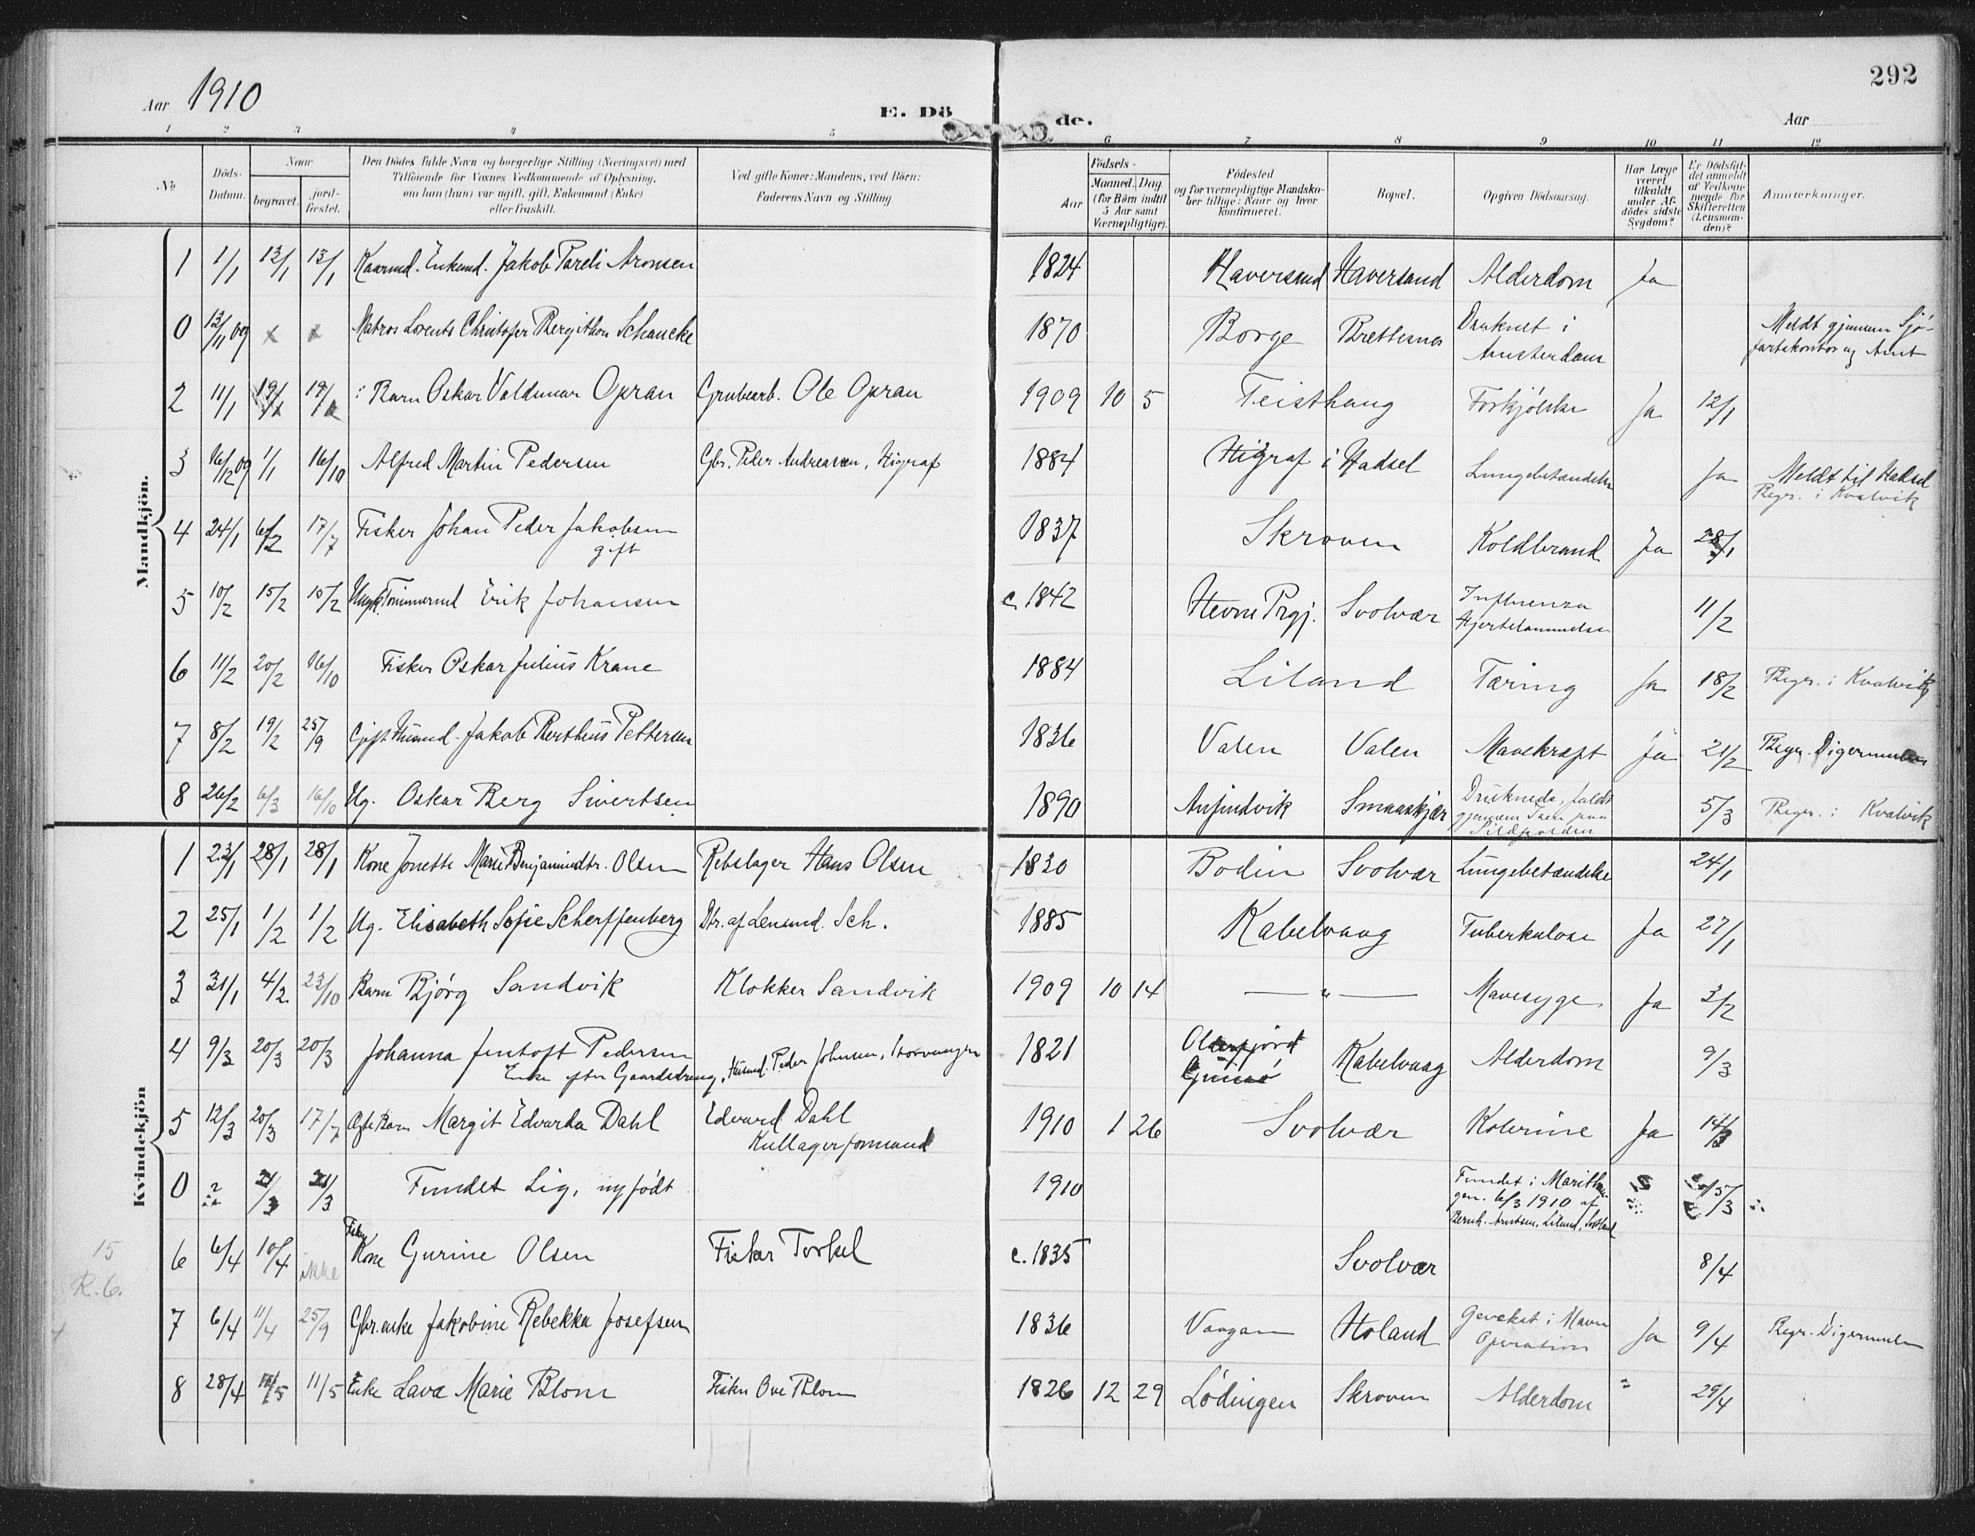 292
Aar 1910
E. Dö de.
Aar
1 2 3 4 5 6 7 8 9 10 11 12
No
Döds-Datum.
Naar
begravet.
jordfæstet.
Den Dödes fulde Navn og borgerlige Stilling (Næringsvei) med
Tilföiende for Voxnes Vedkommende af Oplysning,
om han (hun) var ugift, gift, Enkemand (Enke)
eller fraskilt.
Ved gifte Koner: Mandens, ved Börn:
Faderens Navn og Stilling.
Födsels-
Aar
Maaned. Dag.
(for Börn indtil
5 Aar samt
Værnepligtige).
Födested
og for værnepligtige Mandska-
ber tillige: Naar og hvor
konfirmeret.
Bopæl.
Opgiven Dödsaarsag.
Har Læge
været
tilkaldt
under Af-
dödes sidste
Sygdom?
Er Dödsfal-
det anmeldt
af Vedkom-
mende for
Skifteretten
(Lensman-
den)?
Anmærkninger.
Mandkjön.
1 1/1 13/1 13/1 Kaarmd. Enkemd. Jakob Pareli Aronsen 1824 Haversand Haversand Alderdom Ja
0 13/11 09 x x Matros Lorents Christofer Bergithon Schancke 1870 Borge Brettesnes Druknet i Amsterdam Meldt gjennem Sjö-
fartskontor og Amt
2 11/1 19/1 Barn Oskar Valdemar Opran Grubearb. Ole Opran 1909 10 5 Teisthaug Forkjölelse Ja 12/1
3 16/12 09 1/1 16/10 Alfred Martin Pedersen Gbr. Peder Andreasen, Higraf 1884 Higraf i Hadsel Lungebetændelse Ja Meldt til Hadsel
Regr. i Kvalvik
4 24/1 6/2 17/7 Fisker Johan Peder Jakobsen
gift 1837 Skroven Koldbrand Ja 28/1
5 10/2 15/2 15/2 Ungk. Tömmermd Erik Johansen c. 1842 Hevne Prgj. Svolvær Influenza
Hjertelammelse 11/2
6 11/2 20/2 16/10 Fisker Oskar Julius Krane 1884 Liland Tæring Ja 18/2 Regr. i Kvalvik
7 8/2 19/2 25/9 Gift Husmd. Jakob Bertheus Pettersen 1836 Valen Valen Mavekræft Ja 21/2 Regr. Digermulen
8 26/2 6/3 16/10 Ug. Oskar Berg Sivertsen 1890 Anfindvik Smaaskjær Druknede, faldt
gjennem Isen paa
Sildpolden 5/3 Regr. i Kvalvik
Kvindekjön
1 23/1 28/1 28/1 Kone Jonette Marie Benjamindtr. Olsen Rebslager Hans Olsen 1830 Bodin Svolvær Lungebetændelse 24/1
2 25/1 1/2 1/2 Ug. Elisabeth Sofie Scherffenberg Dtr. af Lensmd. Sch. 1885 Kabelvaag Tuberkulose Ja 27/1
3 31/1 4/2 23/10 Barn Bjórg Sandvik Klokker Sandvik 1909 10 14 — " — Mavesyge Ja 3/2
4 9/3 20/3 20/3 Johanna Jentoft Pedersen
Enke efter Gaardsdreng, Husmd. Peder Johnsen, Storvaagen 1821 Olderfjord
Gimsö Kabelvaag Alderdom 9/3
5 12/3 20/3 17/7 Barn Margit Edvarda Dahl Edvard Dahl
Kullagerformand 1910 1 26 Svolvær Kolerine Ja 14/3
0 ? 21/3 21/3 Fundet Lig, nyfödt 1910 Fundet i Marithau-
gen. 6/3 1910 af
Bernh. Arntsen, Liland, 15/3
6 6/4 10/4 ikke Fisker
Kone Gurine Olsen Fisker Torkel c. 1835 Svolvær 8/4
15
R. 6.
7 6/4 11/4 25/9 Gbr.enke Jakobine Rebekka Josefsen 1836 Vaagan Holand Gevekst i Maven
Operation Ja 9/4 Regr. Digermulen
8 28/4 11/5 Enke Lava Marie Blom Fisker Ove Blom 1826 12 29 Lödingen Skroven Alderdom " 29/4